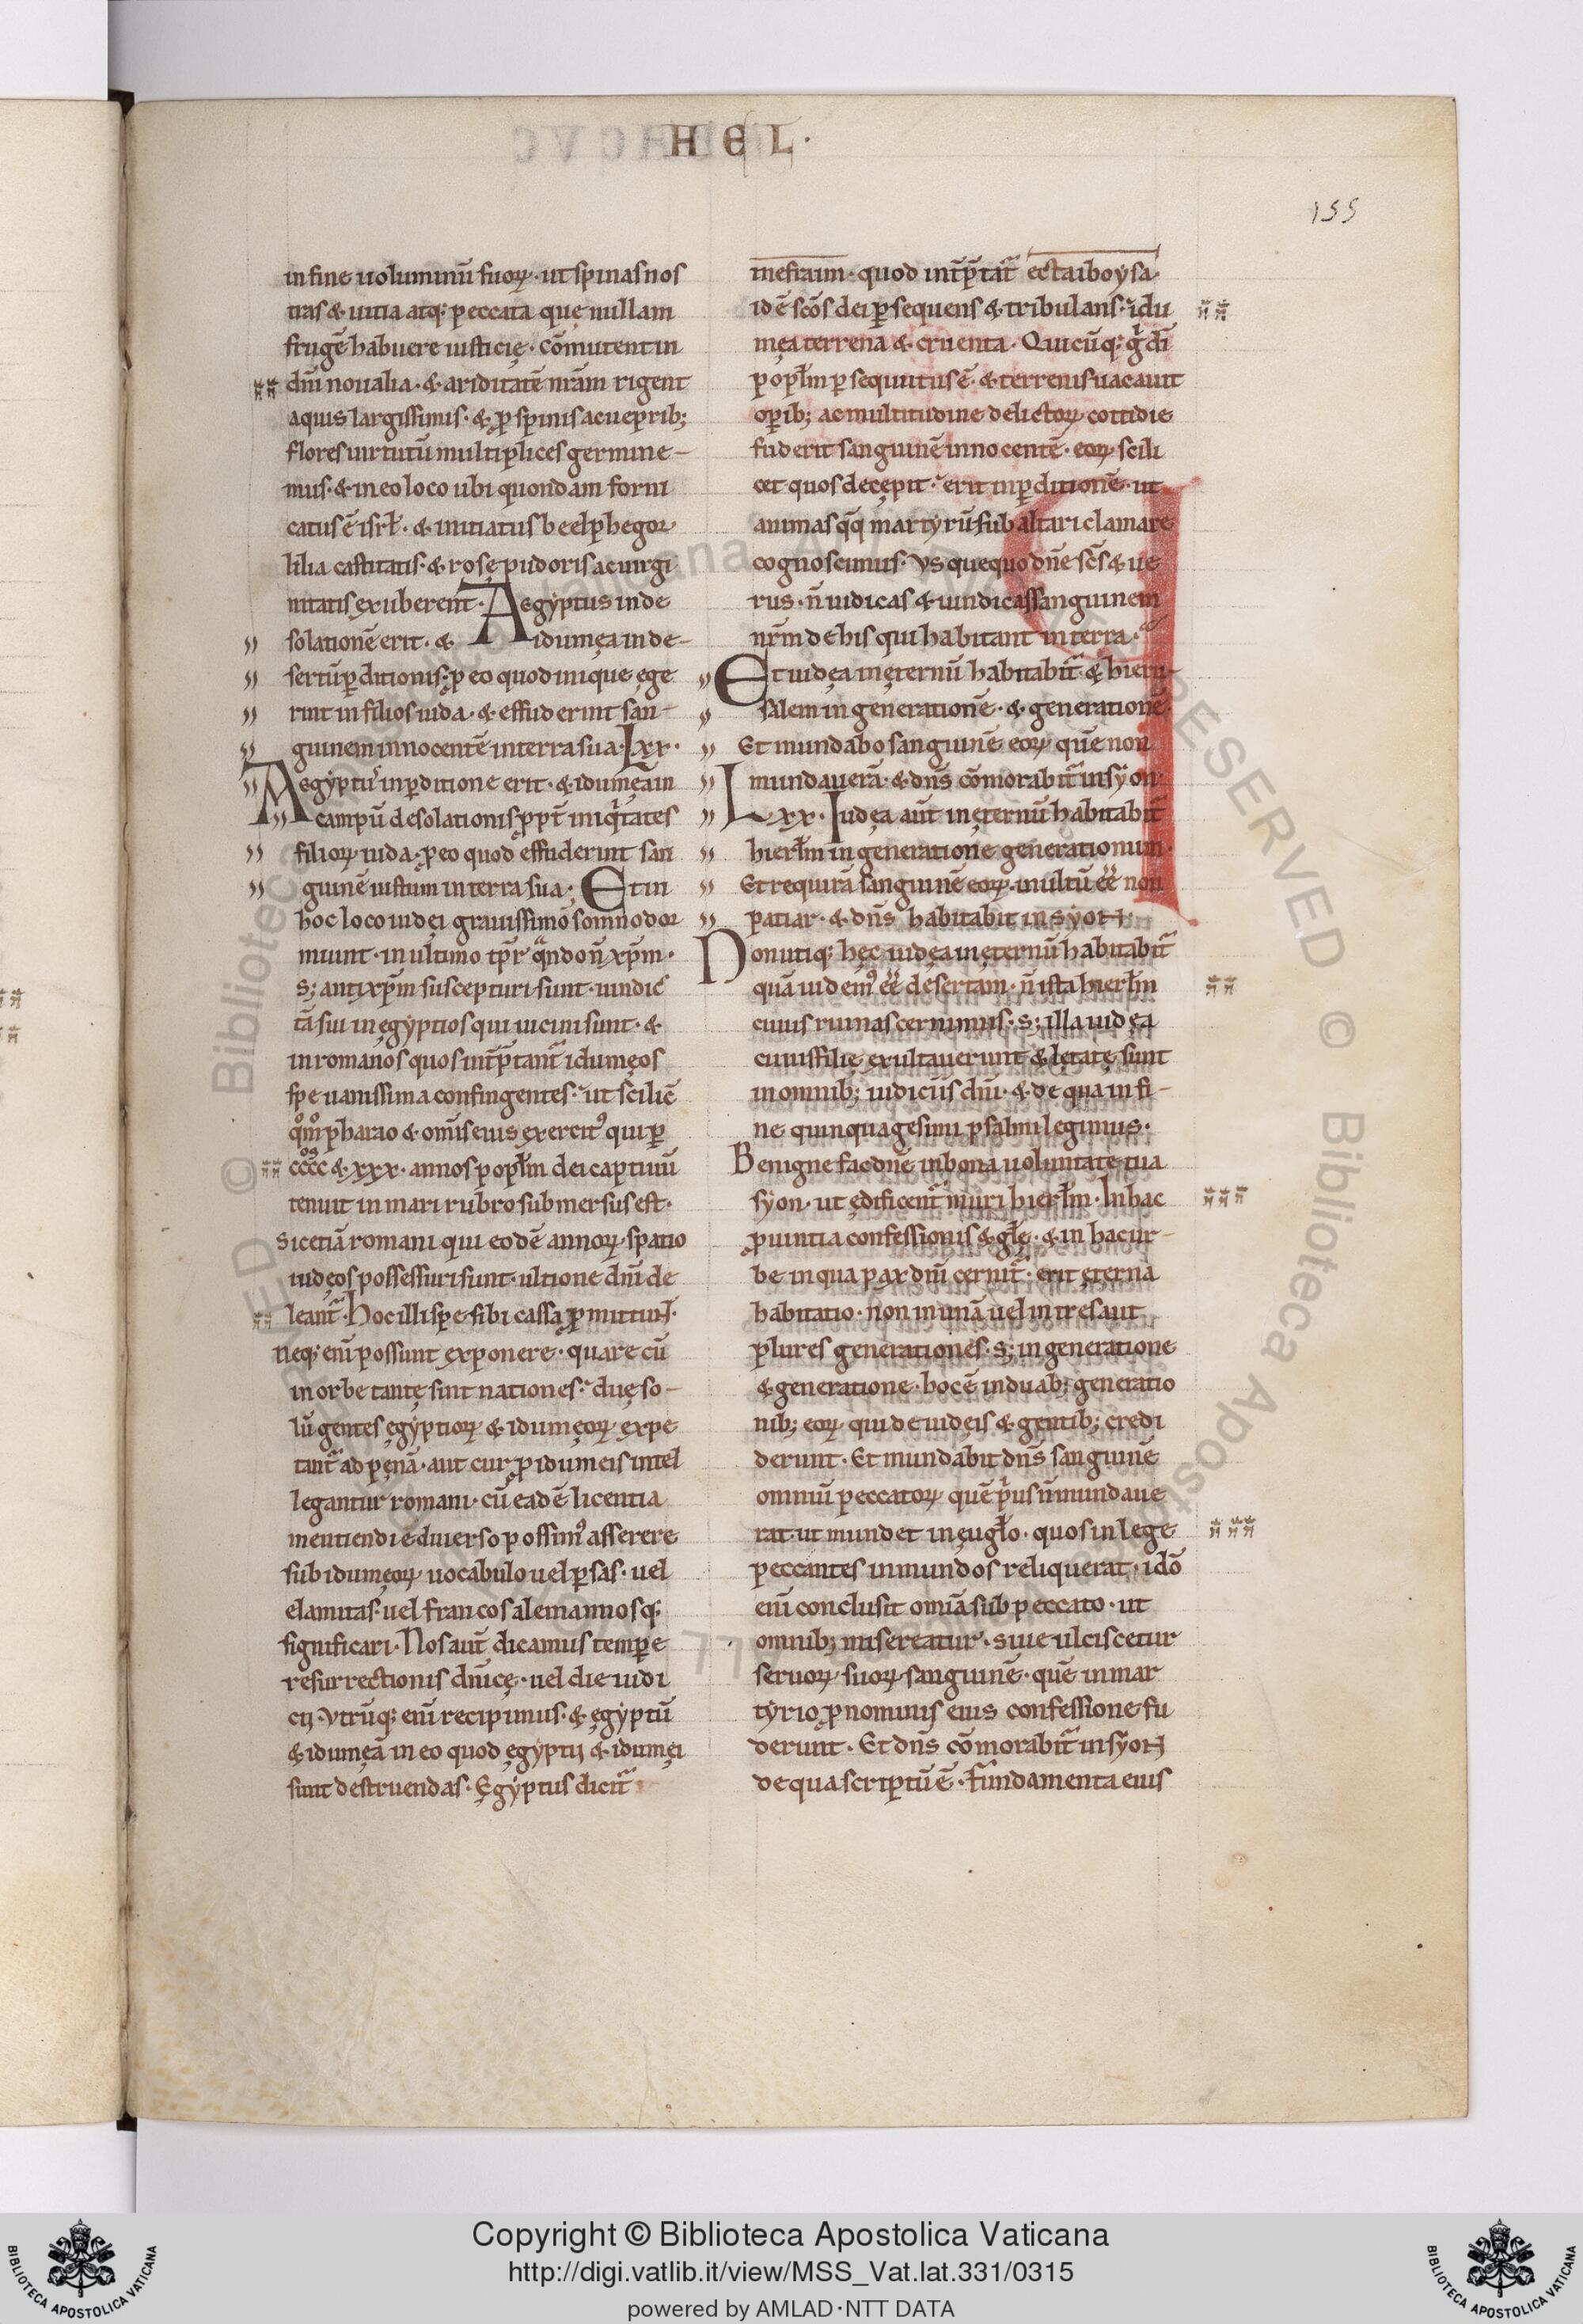 HEL·
155
in fine uoluminū suoꝝ· ut spinas nos
tras & uitia atq; peccata quę nullam
frugē habuere iusticię· cōmutent in
dn̄i noualia· & ariditatē nr̄am rigent
aquis largissimis· & ꝓ spinis ac uepribꝫ
flores uirtutū multiplices germine-
mus· & in eo loco ubi quondam forni
catus ē isrł· & initiatus beelphegor
lilia castitatis· & rosę pudoris ac uirgi
nitatis exuberent· Aegyptus in de
solationē erit· & idumęa in de-
sertū ꝑditionis· ꝓ eo quod inique ege
rint in filios iuda· & effuderint san-
guinem innocentē in terra sua· Lxx·
Aegyptus in ꝑditione erit· & idumęa in
campū desolationis ꝓpt̄ iniq'tates
filioꝝ iuda· ꝓ eo quod effuderint san
guinē iustum in terra sua· Et in
hoc loco iudęi grauissimo somno dor
miunt· in ultimo tp̄r qn̄do n̄ xp̄m·
sꝫ antixp̄m suscepturi sunt· uindic
tā sui in egyptios qui uicini sunt· &
in romanos quos int̄p̄tant̄ idumęos
spe uanissima confingentes· ut scilic&
qm̊o pharao & om̄is eius exercit᾽ qui ꝑ
cccc & xxx· annos popłm dei captiuū
tenuit in mari rubro submersus est·
Sic etiā romani qui eodē annoꝝ spatio
iudęos possessuri sunt· ultione dn̄i de
leant̄· Hoc illi spe sibi cassa ꝓmittunt·
Neq; enī possunt exponere· quare cū
in orbe tantę sint nationes· duę so-
lū gentes ęgyptioꝝ & idumęoꝝ expe
tant̄ ad pęnā· aut cur ꝓ idumeis intel
legantur romani· cū eadē licentia
mentiendi e diuerso possim᾽ asserere
sub idumęoꝝ uocabulo uel ꝑsas· uel
elamitas· uel francos alemannosq;
significari· Nos aut̄ dicamus tempore
resurrectionis dn̄icę· uel die iudi
cij· Vtrūq; enī recipimus· & ęgyptū
& idumęā in eo quod ęgyptij & idumęi
sunt destruendas· Ęgyptus dicit̄
mesraim· quod int̄p̄tat̄ ectaiboysa·
id ē scōs dei ꝑsequens & tribulans· idu
męa terrena & cruenta· Quicūq; g̊ dī
popłm ꝑsequutus ē· & terrenis uacauit
oꝑibꝫ ac multitudine delictoꝝ cottidie
fuderit sanguinē innocentē· eoꝝ scili
cet quos decępit· erit in ꝑditionē· ut
animas qq̄ martyrū sub altari clamare
cognoscimus· Vsquequo dn̄e scs̄ & ue
rus· n̄ iudicas & uindicas sanguinem
nr̄m de his qui habitant in terra·
Et iudęa in ęternū habitabit̄· & hieru-
salem in generationē· & generationē·
Et mundabo sanguinē eoꝝ quē non
mundauerā· & dn̄s cōmorabit̄ in syon·
Lxx· Iudęa aut̄ in ęternū habitabit̄
hierłm in generatione generationum·
Et requirā sanguinē eoꝝ· inultū ee̅ non
patiar· & dn̄s habitabit in syon·
Non utiq; hęc iudęa in ęternū habitabit̄
quā uidem᾽ ee̅ desertam· n̄ ista hierłm
cuius ruinas cernimus· sꝫ illa iudęa
cuius filię exultauerunt & lętatę sunt
in omnibꝫ iudiciis dn̄i· & de qua in fi-
ne quinquagesimi psalmi legimus·
Benigne fac dn̄e in bona uoluntate tua
syon· ut ędificent̄ muri hierłm· In hac
ꝓuintia confessionis & głę· & in hac ur-
be in qua pax dn̄i cernit̄· erit ęterna
habitatio· non in unā uel in tres aut
plures generationes· sꝫ in generatione
& generatione· hoc ē in duabꝫ generatio
nibꝫ eoꝝ qui de iudęis & gentibꝫ credi
derunt· Et mundabit dn̄s sanguinē
omniū peccatoꝝ quē p'us n̄ mundaue
rat· ut mundet in ęuągło· quos in lege
peccantes inmundos reliquerat· idō
enī conclusit omīa sub peccato· ut
omnibꝫ misereatur· Siue ulciscetur
seruoꝝ suoꝝ sanguinē· quē in mar
tyrio ꝓ nominis eius confessione fu
derunt· Et dn̄s cōmorabit̄ in syon
de qua scriptū ē· fundamenta eius
Copyright © Biblioteca Apostolica Vaticana
http://digi.vatlib.it/view/MSS_Vat.lat.331/0315
powered by AMLAD·NTT DATA
BIBLIOTECA APOSTOLICA VATICANA
BIBLIOTECA APOSTOLICA VATICANA